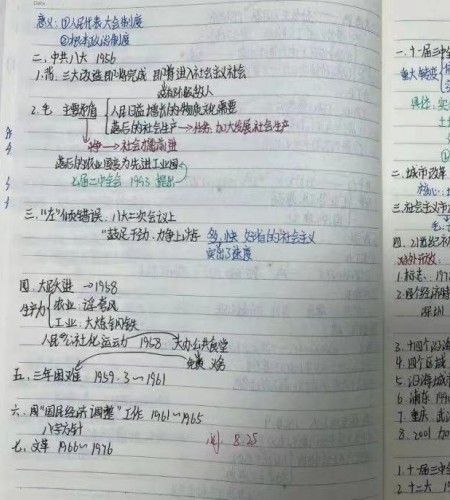 意义：①人民代表大会制度
②根本政治制度
二、中共八大 1956
1.背：三大改造即将完成 即将进入社会主义社会
2.
主要矛盾
人民日益增长的物质文化需要
落后的社会生产→任务：加大发展社会生产
落后的农业国变为先进工业国
七届二中全会 1953 提出
三、"左"倾错误：八大二次会议上
"鼓足干劲、力争上游 多、快 好省的社会主义
突出了速度
四、大跃进 →1958
生产力
农业：浮夸风
工业：大炼钢铁
人民公社化运动 1958
大办公共食堂
免费
五、三年困难 1959.3～1961
六、用"国民经济调整"工作 1961～1965
八字方针
七、文革 1966～1976
8.25
一、十一届三中全
重大转变
具体：实
二、城市改革
核心：
三、社会主义市
四、21世纪
对外开放：
1.标志：197
2.四个经济特
深圳
3.十四个沿海
4.四个区域
5.沿海城市
6.浦东 199
7.重庆 武
8.2001 加
1.十一届三中
2.十二大 19